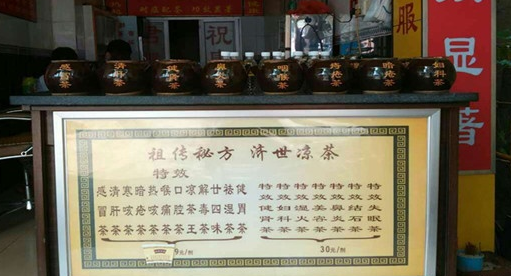 服
显著
感冒茶
清肝茶
健胃茶
鼻炎茶
咽喉茶
痔疮茶
暗疮茶
妇科茶
祖传秘方 济世凉茶
特效
感冒茶
清肝茶
寒咳茶
暗疮茶
热咳茶
喉痛茶
口腔茶
凉茶王
解毒茶
廿四味茶
祛湿茶
健胃茶
9元/剂
特效健骨茶
特效妇科茶
特效湿火茶
特效美容茶
特效鼻炎茶
特效结石茶
特效失眠茶
30元/剂